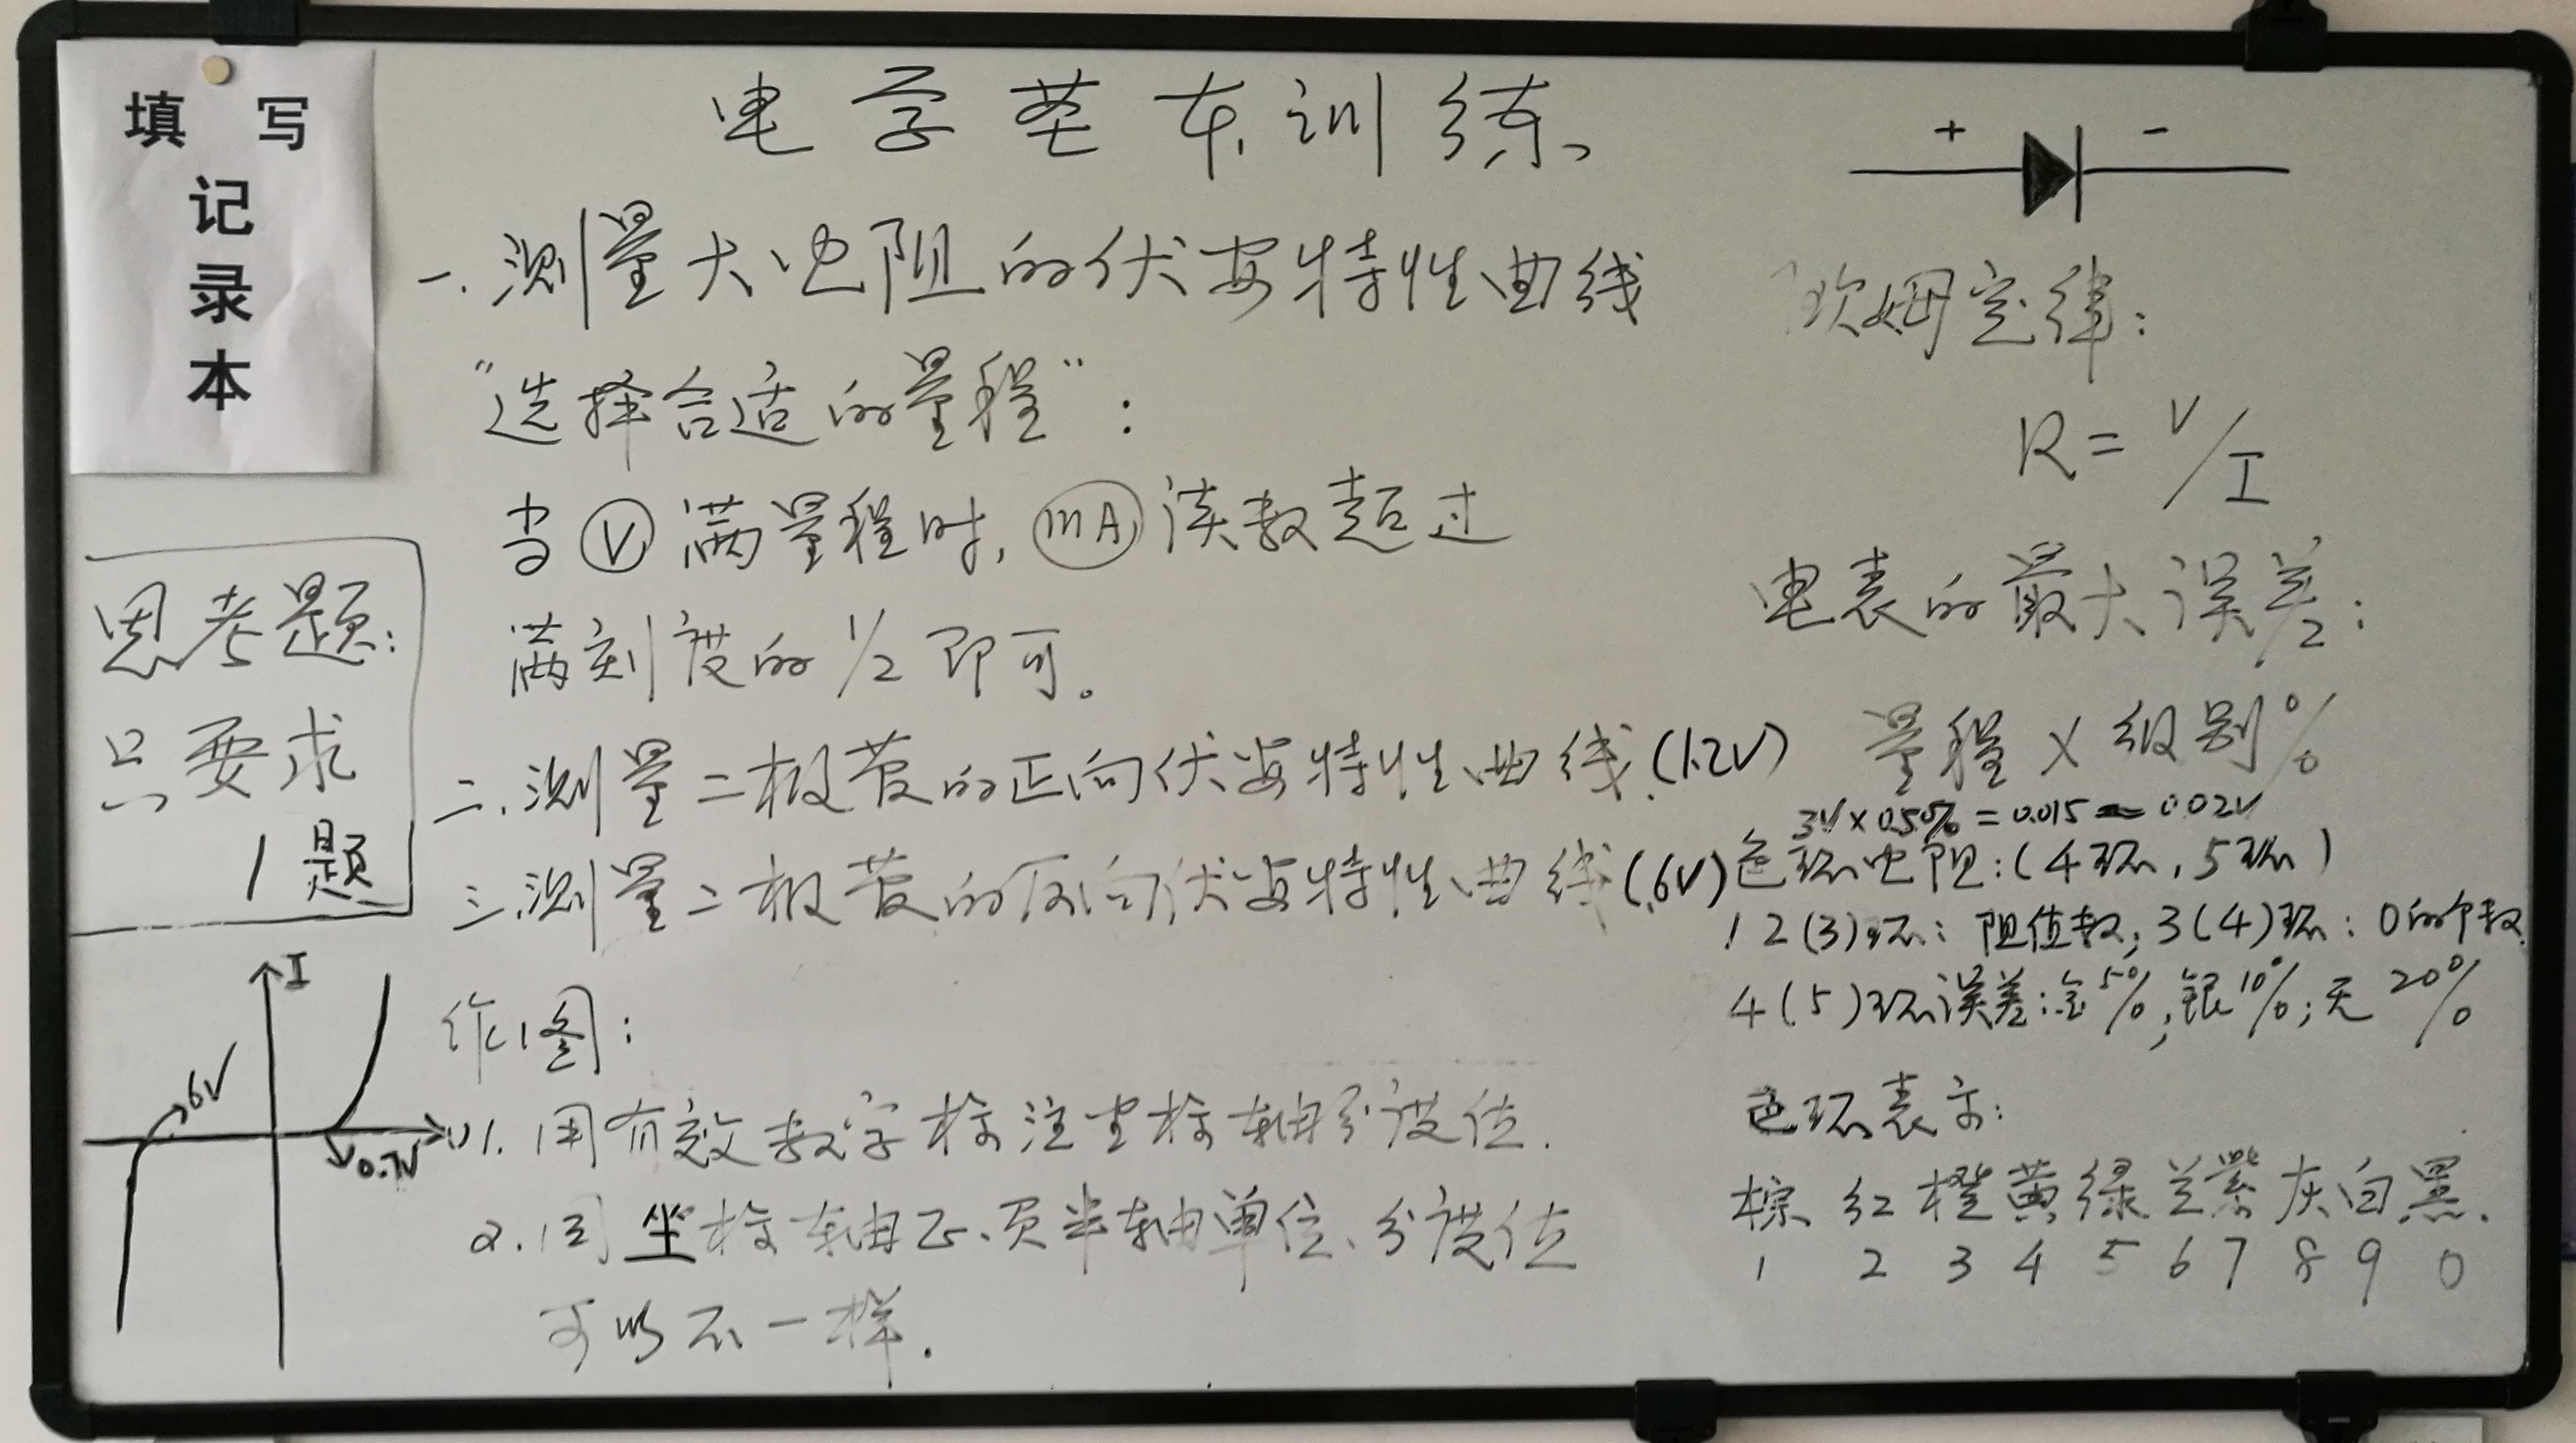 填 写
记
录
本
电学基本训练
一.测量大电阻的伏安特性曲线
"选择合适的量程":
当 V 满量程时, mA 读数超过
满刻度的 1/2 即可。
二.测量二极管的正向伏安特性曲线.(1.2V)
三.测量二极管的反向伏安特性曲线(6V)
作图:
1.用有效数字标注坐标轴分度值.
2.同坐标轴正、负半轴单位、分度值
可以不一样.
思考题:
只要求
1题
I
6V
0.7V
U
+ -
欧姆定律:
R = V/I
电表的最大误差:
量程 × 级别%
3V×0.5% = 0.015 ≈ 0.02V
色环电阻:(4环,5环)
1 2(3)环: 阻值数; 3(4)环: 0的个数
4(5)环误差:金5%,银10%;无20%
色环表示:
棕 红 橙 黄 绿 兰 紫 灰 白 黑
1 2 3 4 5 6 7 8 9 0